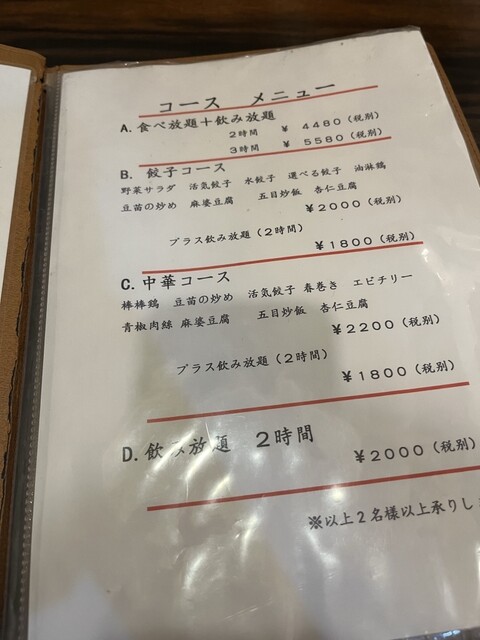 コース メニュー
A. 食べ放題＋飲み放題
2時間 ￥ 4480（税別）
3時間 ￥ 5580（税別）
B. 餃子コース
野菜サラダ 活気餃子 水餃子 選べる餃子 油淋鶏
豆苗の炒め 麻婆豆腐 五目炒飯 杏仁豆腐
￥2000（税別）
プラス飲み放題（2時間）
￥1800（税別）
C. 中華コース
棒棒鶏 豆苗の炒め 活気餃子 春巻き エビチリー
青椒肉絲 麻婆豆腐 五目炒飯 杏仁豆腐
￥2200（税別）
プラス飲み放題（2時間）
￥1800（税別）
D. 飲み放題 2時間
￥2000（税別）
※以上2名様以上承りし